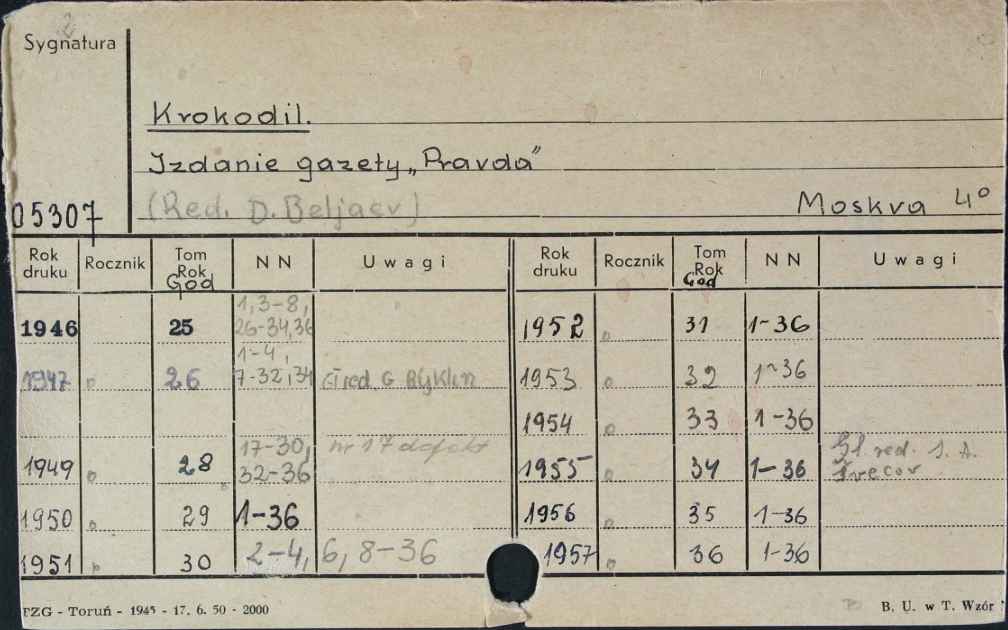 Sygnatura
Krokodil.
Izdanie gazety „Pravda"
05307 (Red. D. Beljaev) Moskva 4°
Rok druku Rocznik Tom Rok God NN Uwagi Rok druku Rocznik Tom Rok God NN Uwagi
1946 25 1,3-8, 26-34,36 1952 31 1-36
1947 26 1-4, 7-32,34 Gł red. G Ryklin 1953 32 1-36
1954 33 1-36
1949 28 17-30, 32-36 nr 17 defekt 1955 34 1-36 Gł. red. S. A. Švecov
1950 29 1-36 1956 35 1-36
1951 30 2-4, 6, 8-36 1957 36 1-36
PZG - Toruń - 1945 - 17. 6. 50 - 2000 B. U. w T. Wzór